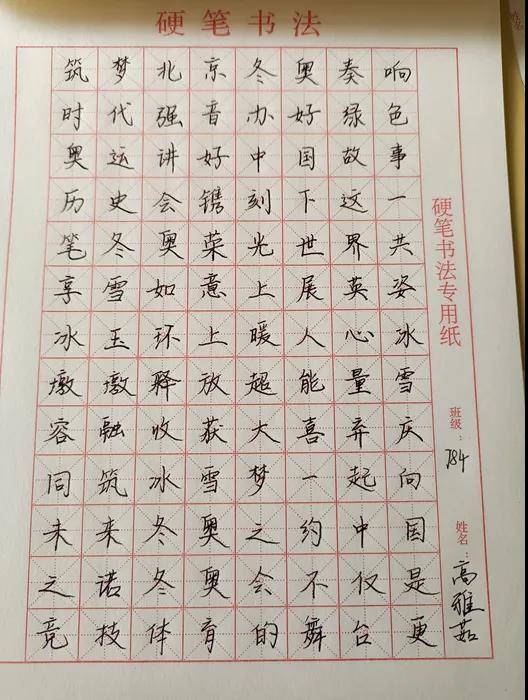 硬笔书法
筑梦北京冬奥奏响
时代强音办好绿色
奥运讲好中国故事
历史会镌刻下这一
笔冬奥荣光世界共
享雪如意上展英姿
冰玉环上暖人心冰
墩墩释放超能量雪
容融收获大喜弃庆
同筑冰雪梦一起向
未来冬奥之约中国
之诺冬奥会不仅是
竞技体育的舞台更
硬笔书法专用纸
班级：784
姓名：高雅茹